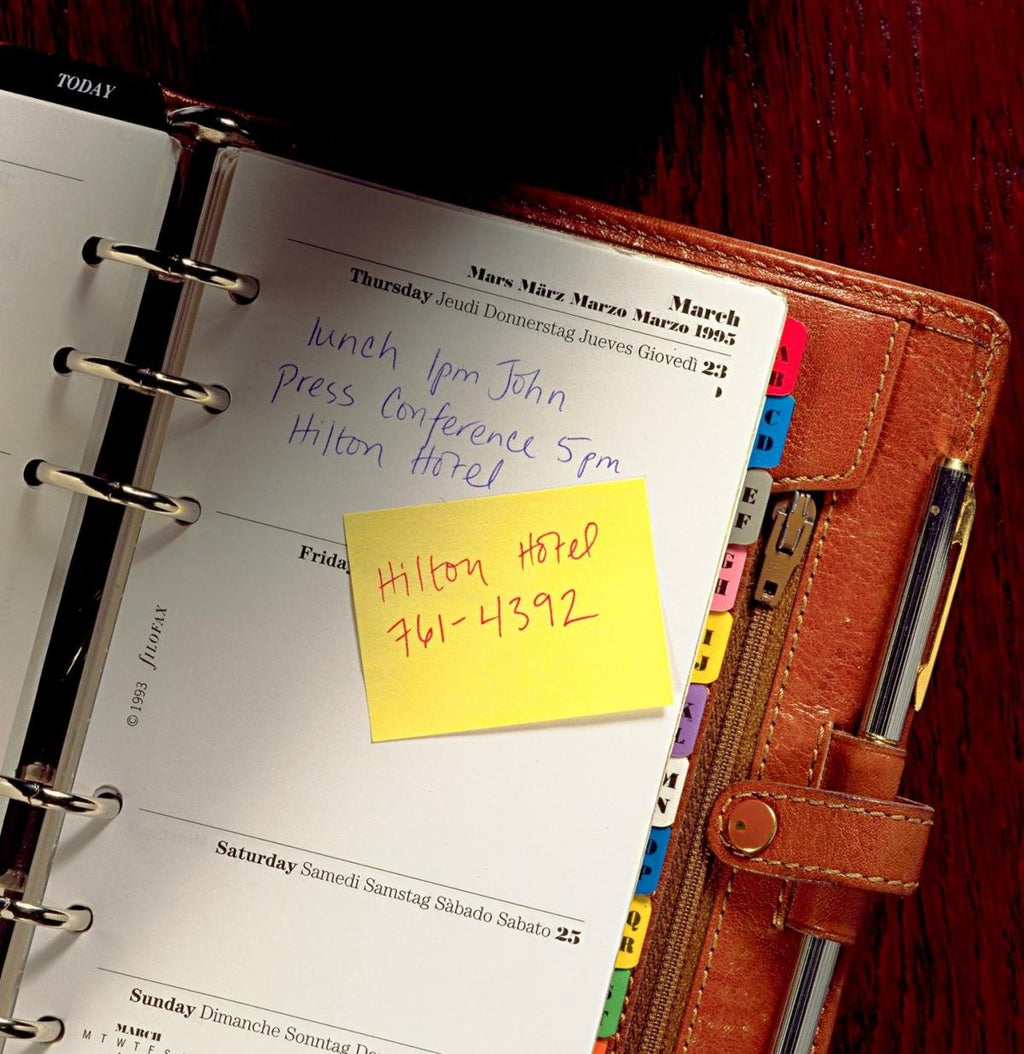 TODAY
March
Mars März Marzo Marzo 1995
Thursday Jeudi Donnerstag Jueves Giovedì 23
lunch 1pm John
Press Conference 5pm
Hilton Hotel
Friday
Hilton Hotel
761-4392
© 1993 filofax
Saturday Samedi Samstag Sàbado Sabato 25
Sunday Dimanche Sonntag
MARCH
M T W T F S
A B
C D
E F
G H
I J
K L
M N
O P
Q R
S